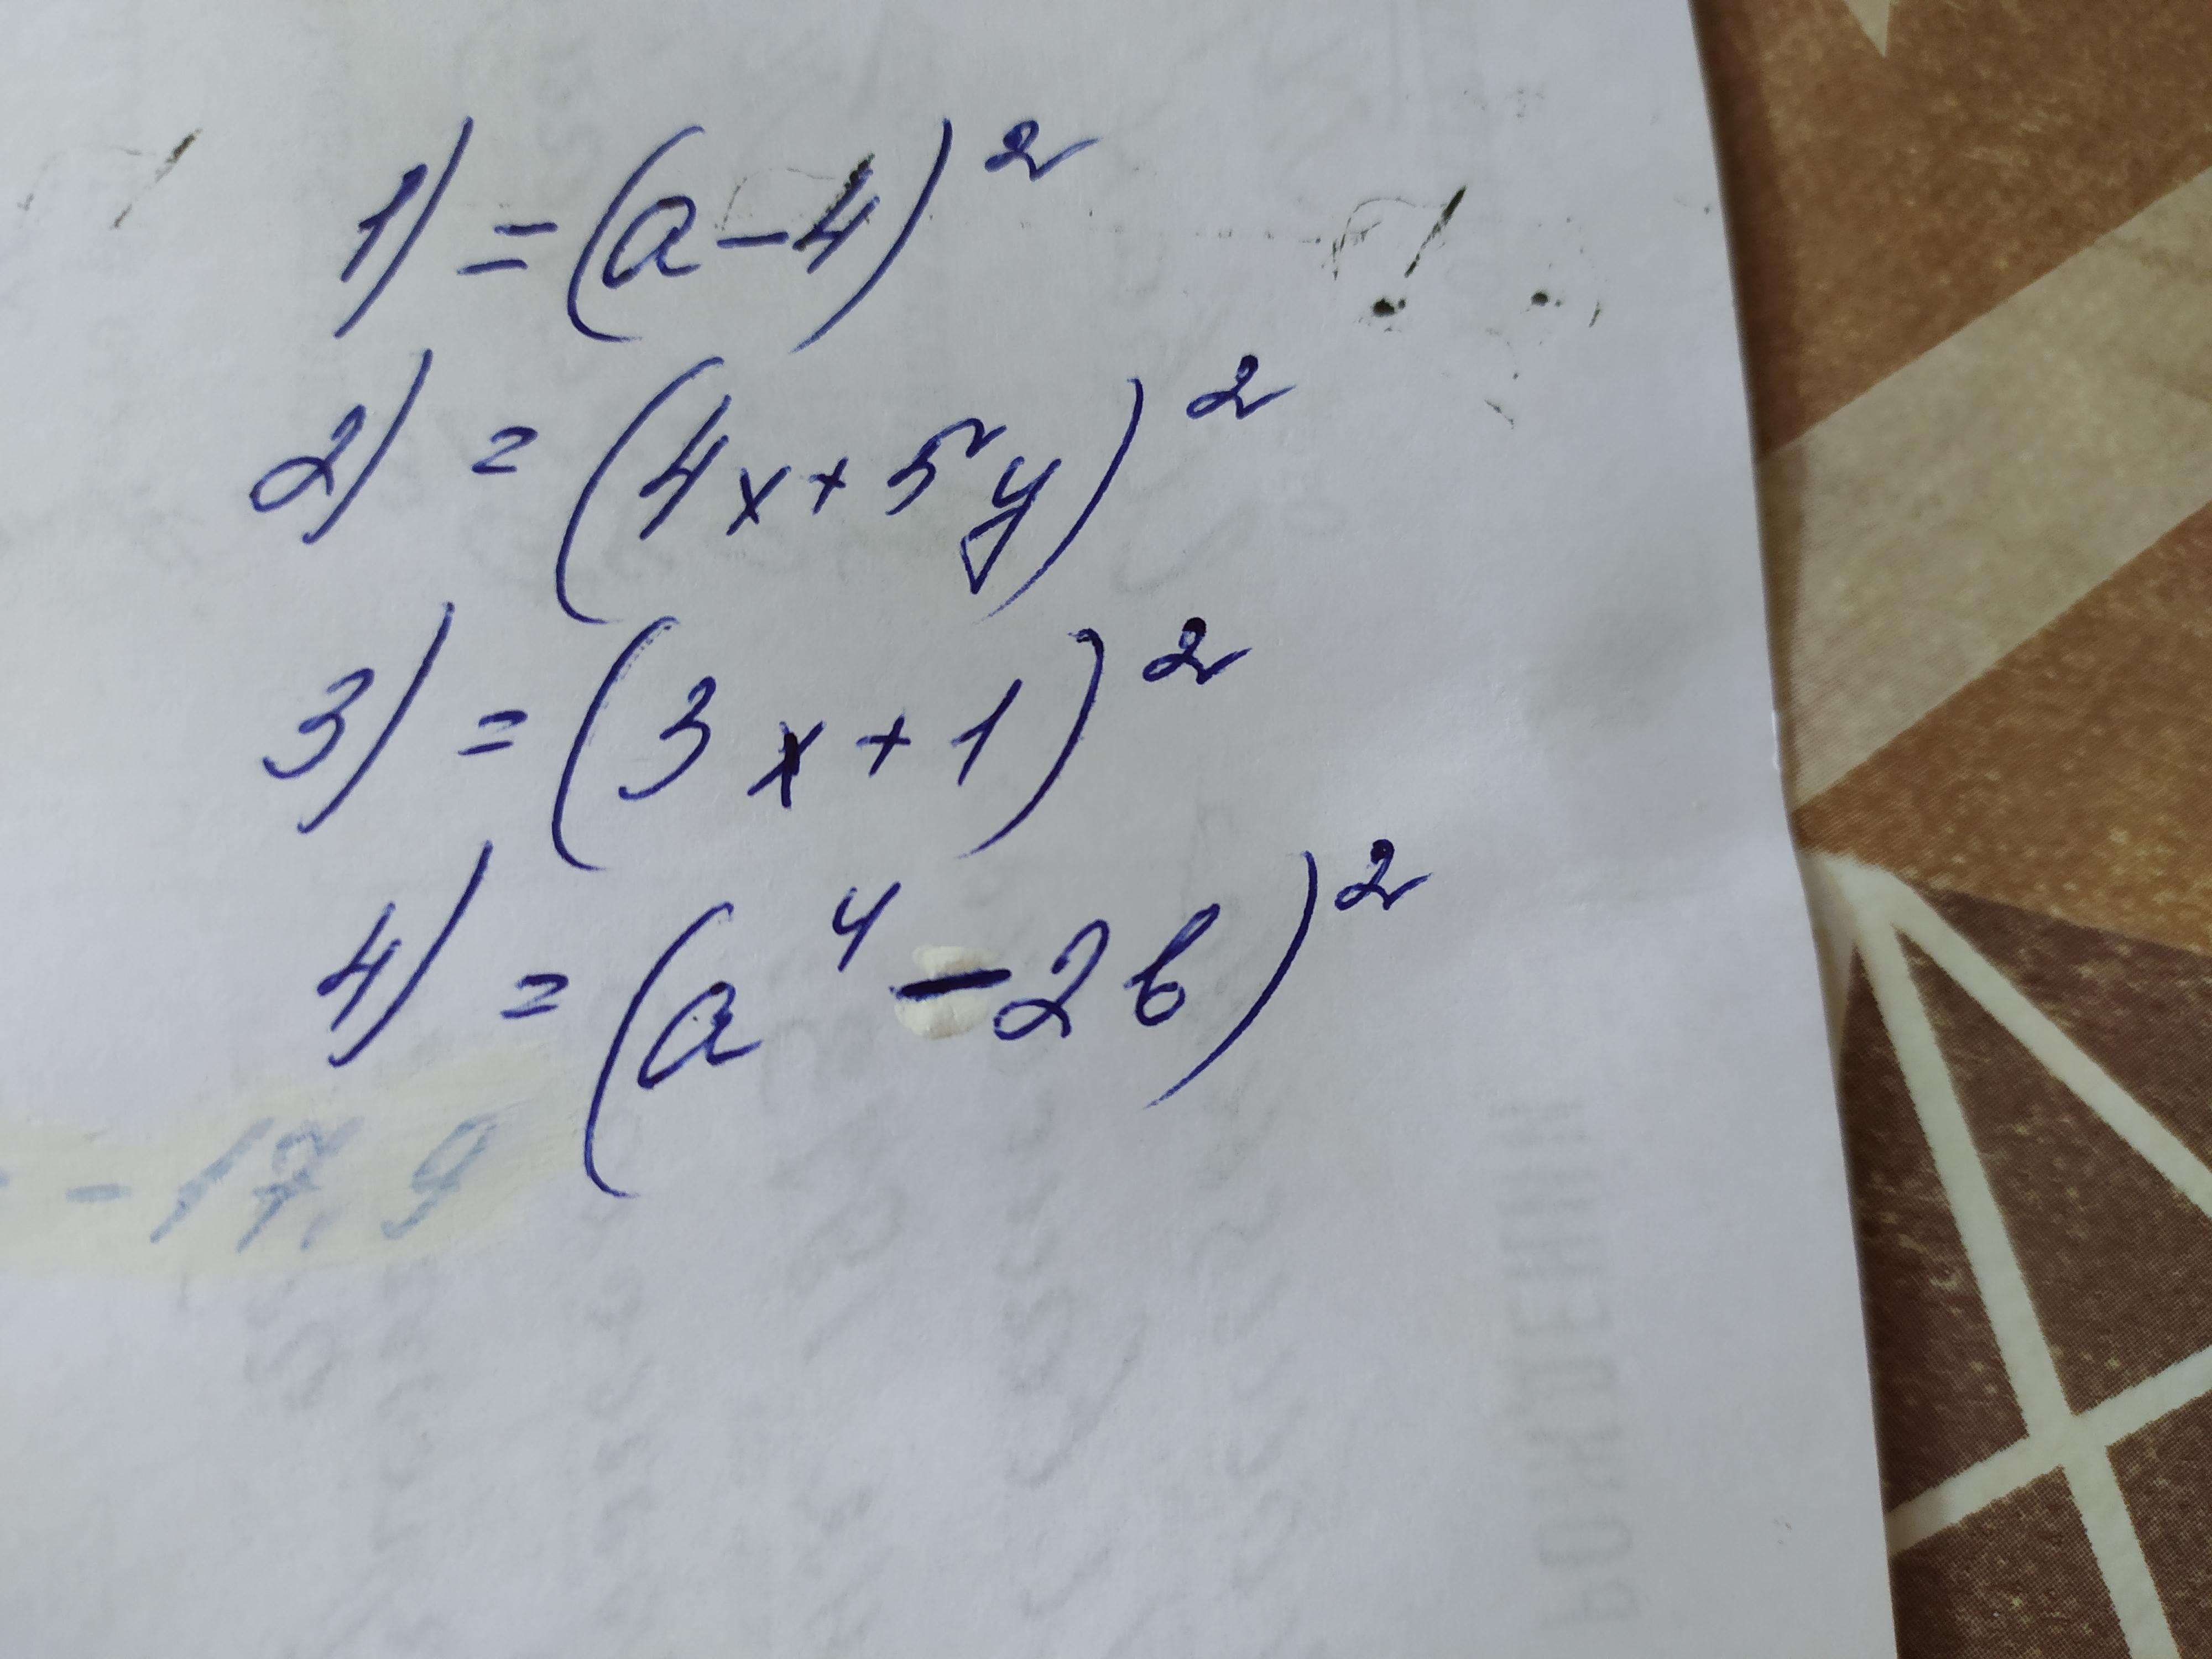 1) = (a - 4)²
2) = (4x + 5y)²
3) = (3x + 1)²
4) = (a⁴ - 2b)²
- 17,9